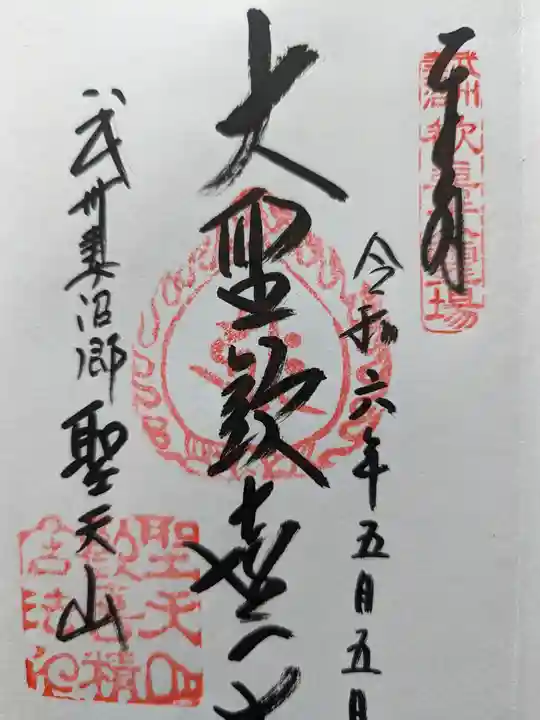 奉拝
武州妻沼
歓喜霊場
令和六年五月五日
大聖歓喜天
武州妻沼郷
聖天山
聖天山
歓喜精
舎法印